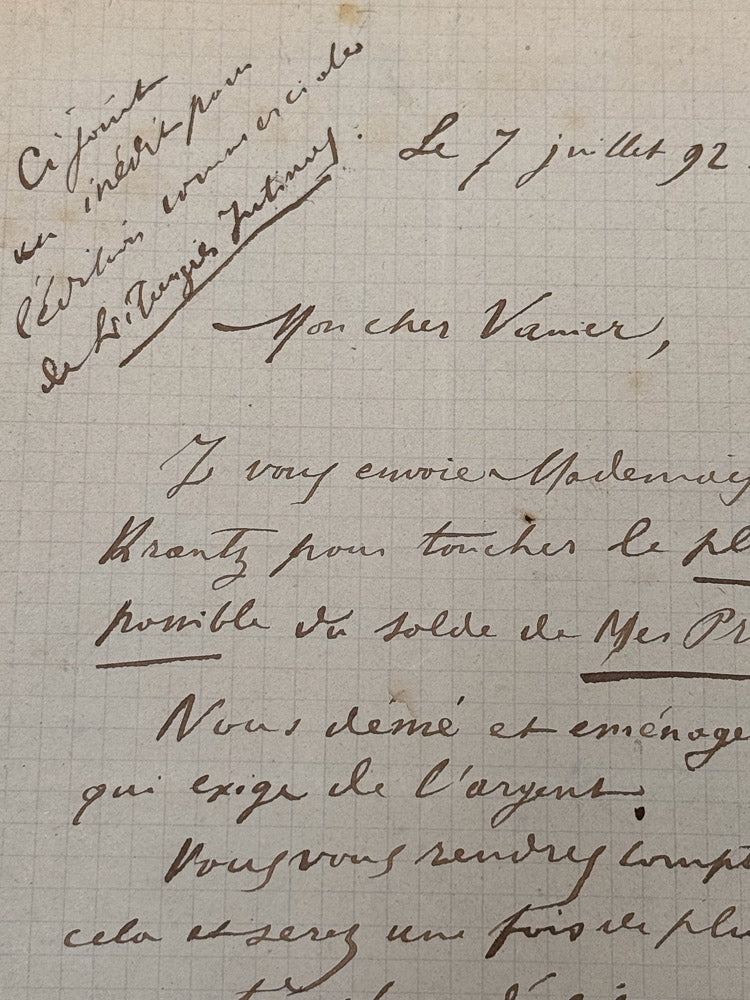 Ci joint
un inédit pour
l'édition commerciale
de Lit. Intimes.
Le 7 juillet 92.
Mon cher Vanier,
J vous envoie Mademois
Krantz pour toucher le pl
possible du solde de Mes Pr
Nous démé et eménage
qui exige de l'argent.
Vous vous rendrez compt
cela et serez une fois de plu